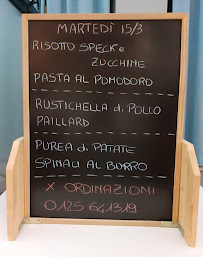 MARTEDÌ 15/3
RISOTTO SPECK e
ZUCCHINE
PASTA AL POMODORO
RUSTICHELLA di POLLO
PAILLARD
PUREA di PATATE
SPINACI AL BURRO
X ORDINAZIONI
0125 641319